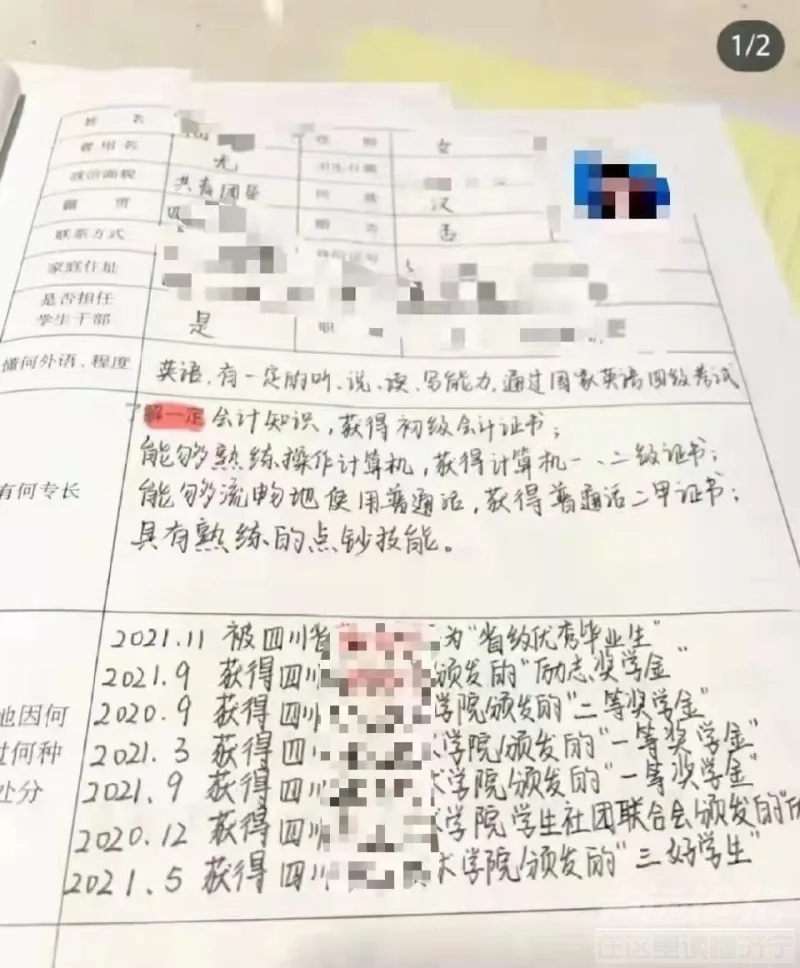 1/2
姓 名
曾用名 无 女
政治面貌 共青团员 汉
籍 贯 四 否
联系方式
家庭住址
是否担任
学生干部 是 职
懂何外语、程度 英语,有一定的听、说、读、写能力,通过国家英语四级考试
有何专长 了解一定会计知识,获得初级会计证书;
能够熟练操作计算机,获得计算机一、二级证书;
能够流畅地使用普通话,获得普通话二甲证书;
具有熟练的点钞技能。
2021.11 被四川省 为"省级优秀毕业生"
2021.9 获得四川 颁发的"励志奖学金"
地因何 2020.9 获得四川 学院颁发的"二等奖学金"
过何种 2021.3 获得四川 学院颁发的"一等奖学金"
处分 2021.9 获得四川 术学院颁发的"一等奖学金"
2020.12 获得四川 学院学生社团联合会颁发的"
2021.5 获得四川 术学院颁发的"三好学生"
在这里读懂济宁